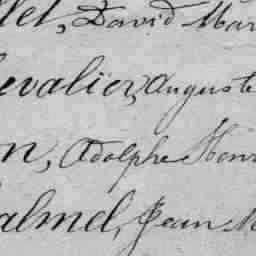 llet, David Mar
evalier, Auguste
n, Adolphe Henr
almel, Jean M